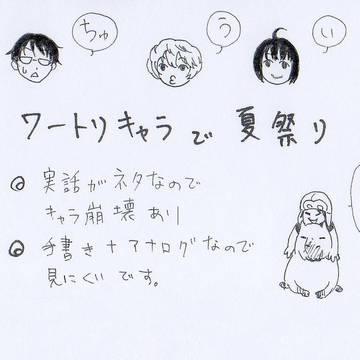 ちゅ
う
い
ワートリキャラで 夏祭り
◎ 実話がネタなので
キャラ崩壊あり
◎ 手書き+アナログなので
見にくいです。